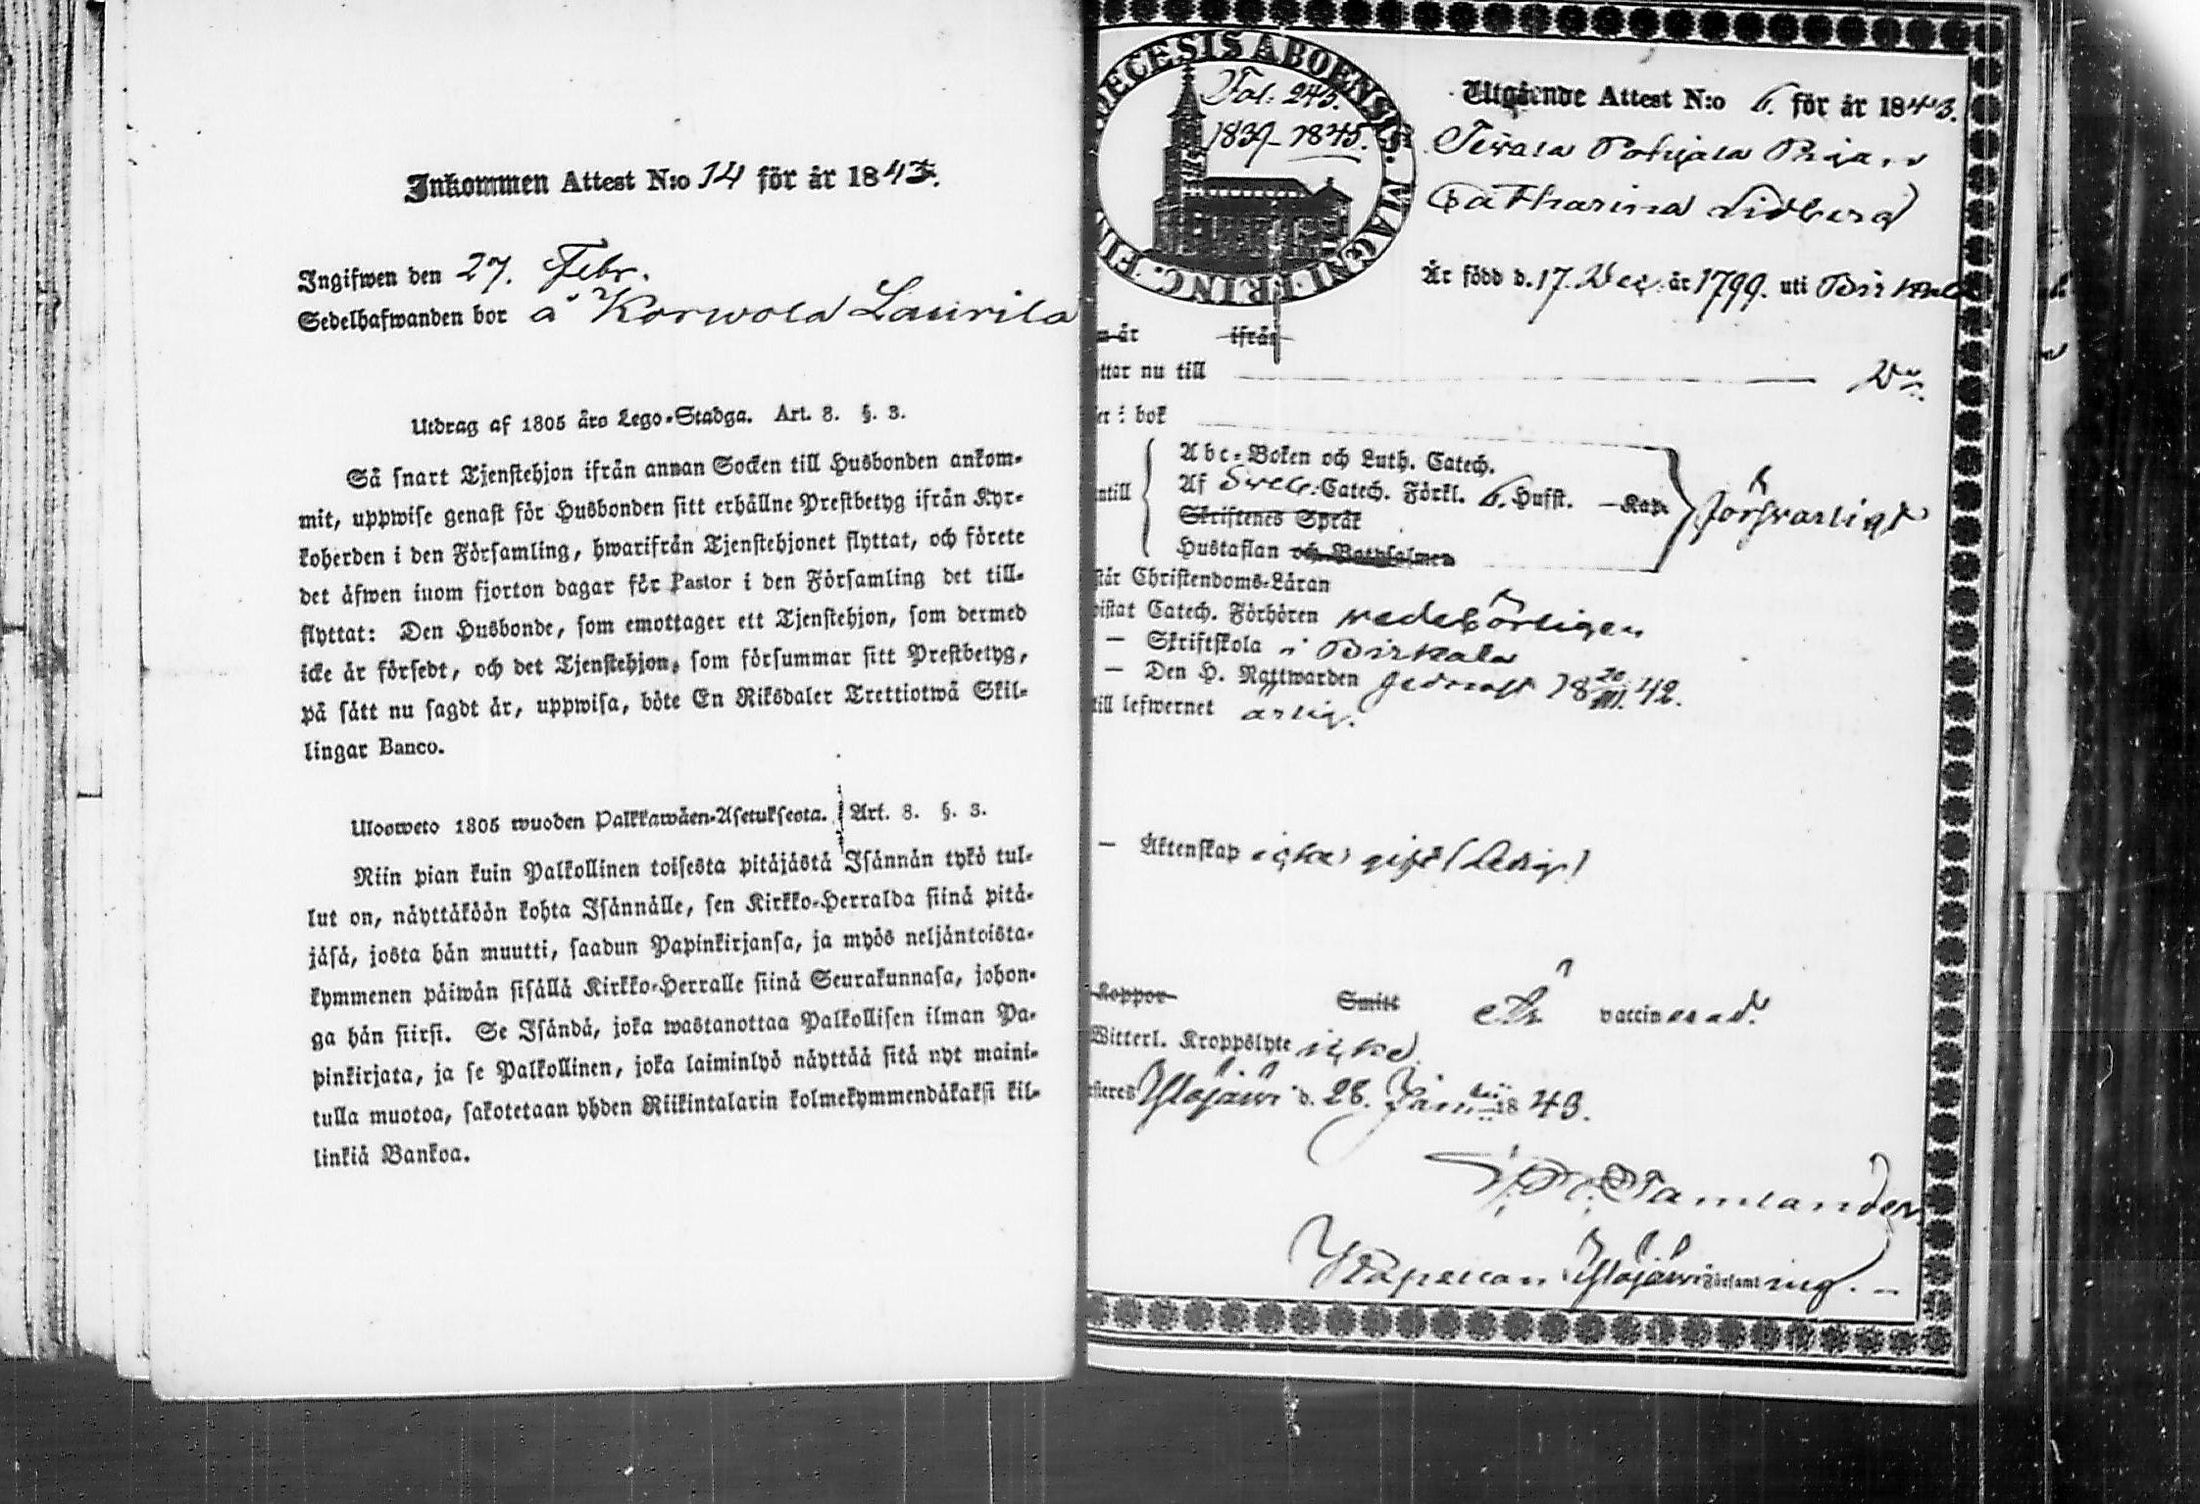 Inkommen Attest N:o 14 för år 1843.
Ingifwen den 27. Febr.
Sedelhafwanden bor å Korwola Laurila
Utdrag af 1805 års Lego-Stadga. Art. 8. §. 3.
Så snart Tjenstehjon ifrån annan Socken till Husbonden ankom-
mit, uppwise genast för Husbonden sitt erhållne Prestbetyg ifrån Kyr-
koherden i den Församling, hwarifrån Tjenstehjonet flyttat, och förete
det äfwen inom fjorton dagar för Pastor i den Församling det till-
flyttat: Den Husbonde, som emottager ett Tjenstehjon, som dermed
icke är försedt, och det Tjenstehjon, som försummar sitt Prestbetyg,
på sätt nu sagdt är, uppwisa, böte En Riksdaler Trettiotwå Skil-
lingar Banco.
Ulosweto 1805 wuoden Palkkawäen-Asetuksesta. Art. 8. §. 3.
Niin pian kuin Palkollinen toisesta pitäjästä Isännän tykö tul-
lut on, näyttäköön kohta Isännälle, sen Kirkko-Herralda siinä pitä-
jäsä, josta hän muutti, saadun Papinkirjansa, ja myös neljäntoista-
kymmenen päiwän sisällä Kirkko-Herralle siinä Seurakunnasa, johon-
ga hän siirsi. Se Isändä, joka wastanottaa Palkollisen ilman Pa-
pinkirjata, ja se Palkollinen, joka laiminlyö näyttää sitä nyt maini-
tulla muotoa, sakotetaan yhden Riikintalarin kolmekymmendäkaksi kil-
linkiä Bankoa.
DECESIS ABOENSIS. MAGNI PRINC. FIN
Fol: 243.
1839-1845.
Utgående Attest N:o 6. för år 1843.
Pohjala Pigan
Catharina Lidberg
Är född d. 17. Dec. år 1799. uti Birkala
år ifrån
ttar nu till
er i bok
Abc-Boken och Luth. Catech.
Af Sveb. Catech. Förkl. 6. Hufst. — Kap.
Skriftenes Språk
Hustaflan och Botpsalmen
ntill
försvarligt
står Christendoms-Läran
vistat Catech. Förhören wederbörligen
— Skriftskola i Birkala
— Den H. Nattwarden sednast 18 20/III. 42.
till lefwernet ärlig.
— Äktenskap icke gift (Ledig)
Koppor Smitt är vaccinerad.
Witterl. Kroppslyte icke
steres Ylöjärwi d. 28. Januarii 1843.
Tamlander
Kapellan i Ylöjärwi Församling. —